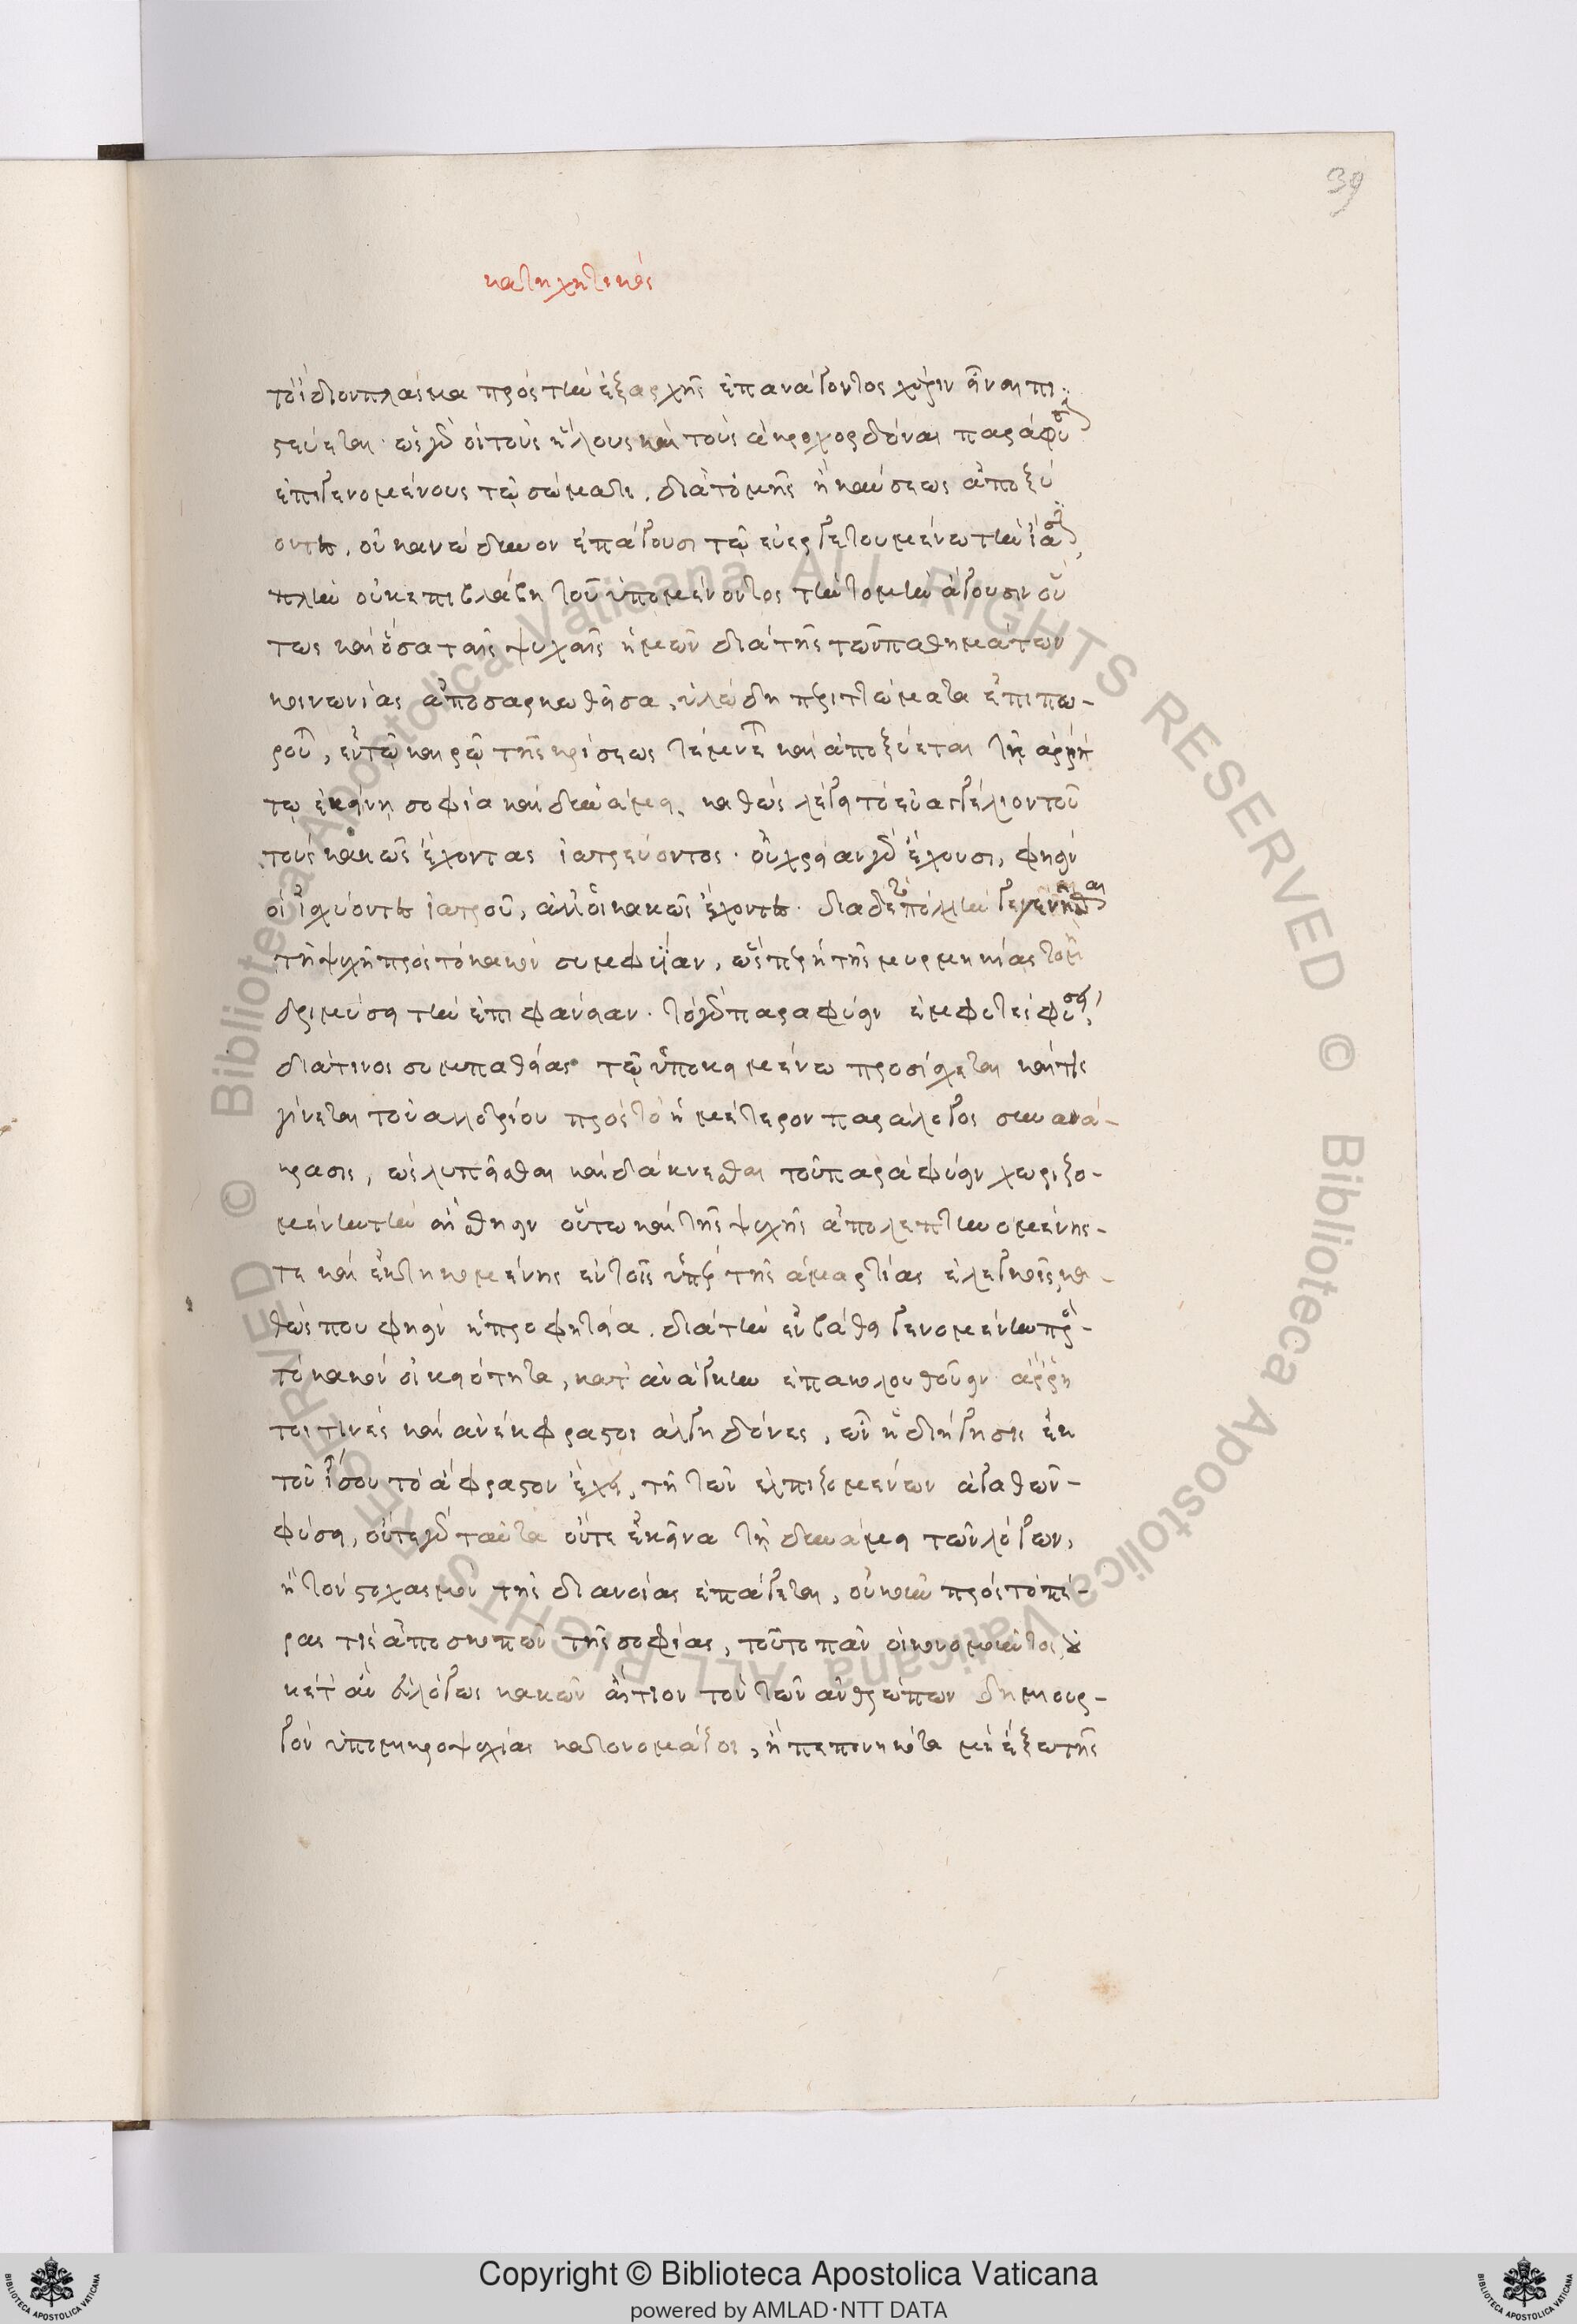 39
κατηχητικός
τὸ ἴδιον πλάσμα πρὸς τὴν ἐξαρχῆς ἐπανάγοντος χάριν εἶναι πι
στεύεται· ὡς γὰρ οἱ τοὺς ἥλους καὶ τοὺς ἀκροχορδόναι παρὰ φύσιν
ἐπιγενομένους τῷ σώματι, διὰ τομῆς ἢ καύσεως ἀποξύ
οντες, οὐκ ἀνώδυνον ἐπάγουσι τῷ εὐεργετουμένω τὴν ἴασιν,
πλὴν οὐκ ἐπιβλάβη τοῦ ὑπομένοντος τὴν τομὴν ἄγουσιν οὕ
τως καὶ ὅσα ταῖς ψυχαῖς ἡμῶν διὰ τῆς τῶν παθημάτων
κοινωνίας ἀποσαρκωθεῖσα, ὑλώδη περιττώματα ἐπιπω-
ροῦ, ἐν τῷ καιρῷ τῆς κρίσεως τέμνεται καὶ ἀποξύεται τῇ ἀρρή
τῳ ἐκείνῃ σοφία καὶ δυνάμει, καθὼς λέγει τὸ εὐαγγέλιον τοῦ
τοὺς κακῶς ἔχοντας ἰατρεύοντος· οὐ χρείαν γὰρ ἔχουσι, φησὶν
οἱ ἰσχύοντες ἰατροῦ, ἀλλ' οἱ κακῶς ἔχοντες· διὰ δὲ τὸ πολλὴν γεγενῆσθαι
τῇ ψυχῇ πρὸς τὸ κακὸν συμφυΐαν, ὥσπερ ἡ τῆς μυρμηκίας τομὴ
δριμύσει τὴν ἐπιφάνειαν· τὸ γὰρ παρὰ φύσιν ἐμφυτεὶ φύσει,
διά τινος συμπαθείας τῷ ὑποκειμένω προσίσχεται καί τις
γίνεται τοῦ ἀλλοτρίου πρὸς τὸ ἡμέτερον παράλογος συνανά-
κρασις, ὡς λυπεῖσθαι καὶ δάκνεσθαι τοῦ παρὰ φύσιν χωριζο-
μένην τὴν αἴσθησιν οὕτω καὶ τῆς ψυχῆς ἀπολεπτυνομένης-
τε καὶ ἐκτηκομένης ἐν τοῖς ὑπὲρ τῆς ἁμαρτίας ἐλεγμοῖς, κα-
θώς που φησὶν ἡ προφητεία, διὰ τὴν ἐν βάθει γενομένην πρὸς-
τὸ κακὸν οἰκειότητα, κατ' ἀνάγκην ἐπακολουθοῦσιν ἄρρη
τοι τινὲς καὶ ἀνέκφραστοι ἀλγηδόνες, ὧν ἡ διήγησις ἐκ
τοῦ ἴσου τὸ ἄφραστον ἔχει, τῇ τῶν ἐλπιζομένων ἀγαθῶν-
φύσει, οὔτε γὰρ ταῦτα οὔτε ἐκεῖνα τῇ δυνάμει τῶν λόγων,
ἢ τὸν στοχασμὸν τῆς διανοίας ἐπάγεται, οὐκοῦν πρὸς τὸ πέ-
ρας τὶς ἀποσκοπῶν τῆς σοφίας, τοῦτο πᾶν οἰκονομοῦντος οὐ
κέτ' ἂν εὐλόγως κακῶν αἴτιον τὸν τῶν ἀνθρώπων δημιουρ-
γὸν ὑπο μικροψυχίας κατονομάζοι, ἢ πεποιηκότα μὴ ἔξω τῆς
Copyright © Biblioteca Apostolica Vaticana
powered by AMLAD·NTT DATA